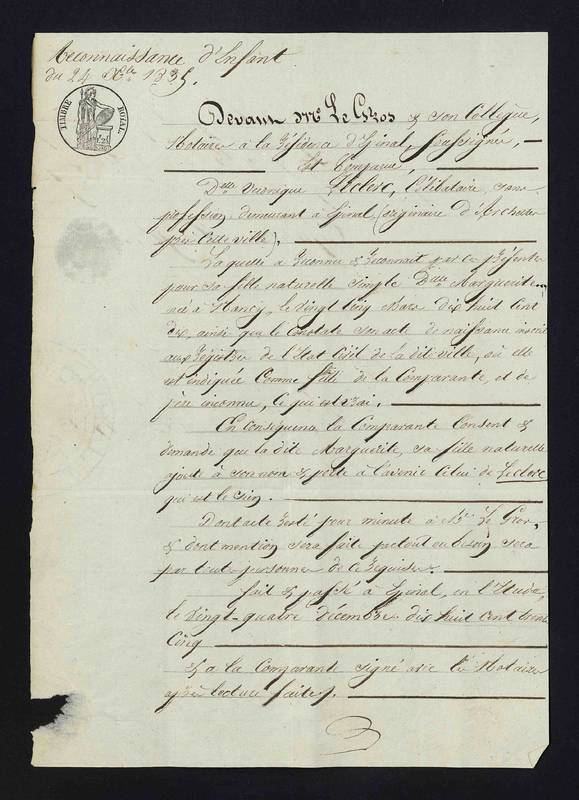 Reconnaissance d'Enfant
du 24 Xbre 1835.
TIMBRE ROYAL
Devant Me Le Gros & son Collègue,
Notaires à la résidence d'Épinal, soussignés,
Est Comparue,
Delle Leclerc, Célibataire, sans
profession, demeurant à Épinal (originaire d'Archettes
près cette ville),
Laquelle a reconnu & reconnait par ces présentes
pour sa fille naturelle simple Delle Marguerite
née à Nancy, le vingt cinq Mars dix huit cent
dix, ainsi que le constate son acte de naissance inscrit
aux registres de l'État Civil de la dite ville, où elle
est indiquée comme fille de la Comparante, et de
père inconnu, ce qui est vrai.
En conséquence la Comparante Consent &
demande que la dite Marguerite, sa fille naturelle
ajoute à son nom & porte à l'avenir celui de Leclerc
qui est le sien.
Dont acte resté pour minute à Me Le Gros,
& dont mention sera faite partout où besoin sera
par toutes personnes de ce requises.
fait & passé à Épinal, en l'Étude,
le vingt-quatre décembre dix huit cent trente
cinq
& a la Comparante signé avec les Notaires
après lecture faite.